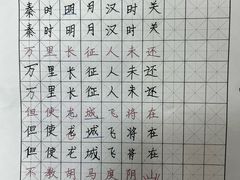 秦时明月汉时关
秦时明月汉时关
万里长征人未还
万里长征人未还
万里长征人未还
但使龙城飞将在
但使龙城飞将在
但使龙城飞将在
不教胡马度阴山